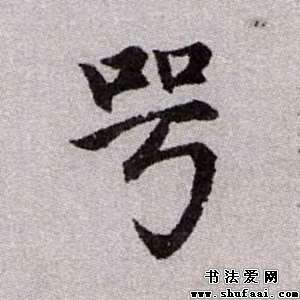 咢
书法爱网
www.shufaai.com